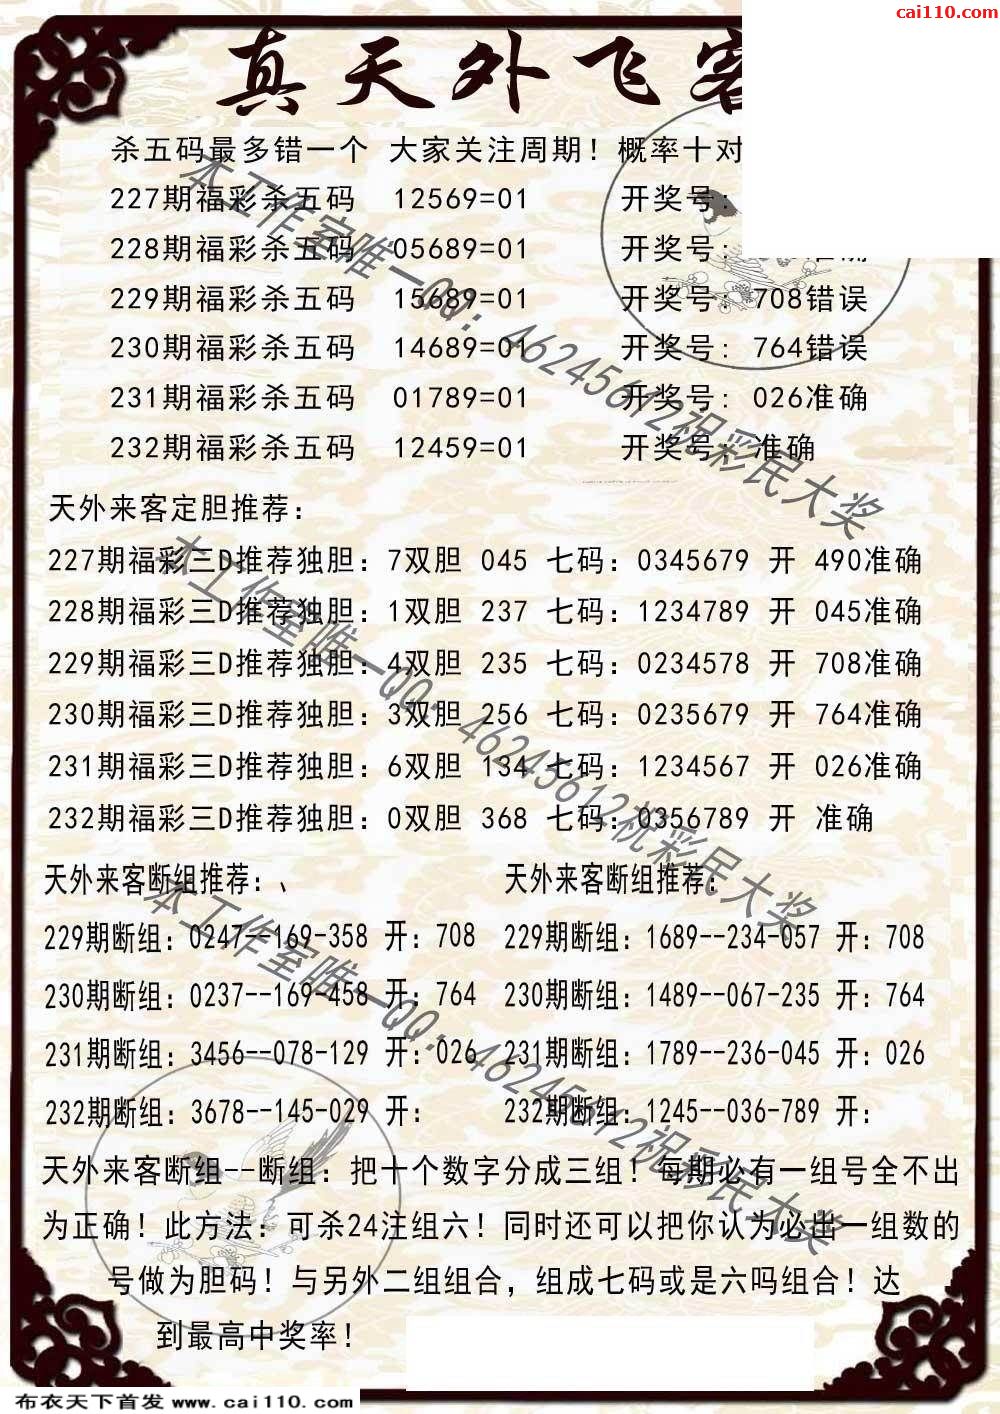 cai110.com
真天外飞客
杀五码最多错一个 大家关注周期！概率十对
227期福彩杀五码 12569=01 开奖号:
228期福彩杀五码 05689=01 开奖号: 准确
229期福彩杀五码 15689=01 开奖号: 708错误
230期福彩杀五码 14689=01 开奖号: 764错误
231期福彩杀五码 01789=01 开奖号: 026准确
232期福彩杀五码 12459=01 开奖号: 准确
天外来客定胆推荐:
227期福彩三D推荐独胆: 7双胆 045 七码: 0345679 开 490准确
228期福彩三D推荐独胆: 1双胆 237 七码: 1234789 开 045准确
229期福彩三D推荐独胆: 4双胆 235 七码: 0234578 开 708准确
230期福彩三D推荐独胆: 3双胆 256 七码: 0235679 开 764准确
231期福彩三D推荐独胆: 6双胆 134 七码: 1234567 开 026准确
232期福彩三D推荐独胆: 0双胆 368 七码: 0356789 开 准确
天外来客断组推荐:、 天外来客断组推荐:
229期断组: 0247--169-358 开: 708 229期断组: 1689--234-057 开: 708
230期断组: 0237--169-458 开: 764 230期断组: 1489--067-235 开: 764
231期断组: 3456--078-129 开: 026 231期断组: 1789--236-045 开: 026
232期断组: 3678--145-029 开: 232期断组: 1245--036-789 开:
天外来客断组--断组: 把十个数字分成三组！每期必有一组号全不出
为正确！此方法: 可杀24注组六！同时还可以把你认为必出一组数的
号做为胆码！与另外二组组合，组成七码或是六吗组合！达
到最高中奖率！
本工作室唯一QQ: 46245612祝彩民大奖
本工作室唯一QQ: 46245612祝彩民大奖
本工作室唯一QQ: 46245612祝彩民大奖
布衣天下首发 www.cai110.com